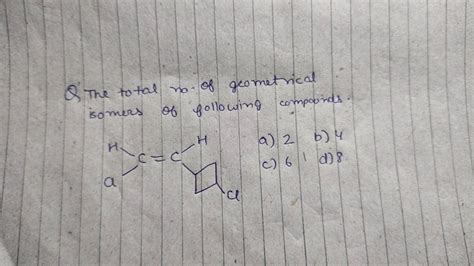 Q The total no. of geometrical
isomers of following compounds.
H H
C = C
a Cl
a) 2 b) 4
c) 6 d) 8